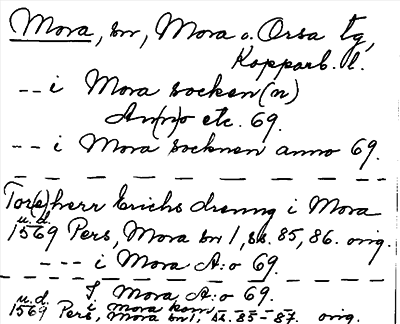 Mora, sn, Mora o. Orsa tg,
Kopparb. l.
-- i Mora socken(n)
An(n)o etc. 69.
-- i Mora socknen anno 69.
Tor(e) herr Erichs dreng i Mora
u.d.
1569 Pers, Mora sn 1, ss. 85, 86. orig.
--- i Mora A:o 69.
I Mora A:o 69.
u.d. i Mora kom
1569 Pers, Mora sn 1, ss. 85-87. orig.